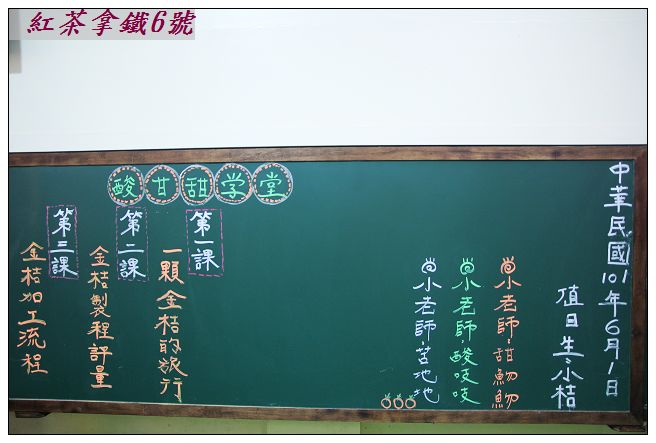 紅茶拿鐵6號
中華民國101年6月1日
值日生:小桔
小老師:甜魩魩
小老師:酸吱吱
小老師苦地地
酸甘甜学堂
第一課
一顆金桔的旅行
第二課
金桔製程評量
第三課
金桔加工流程